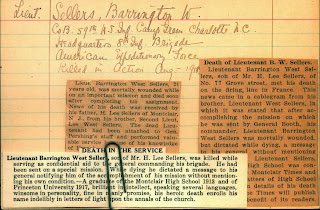 Lieut. Sellers, Barrington W.
Co B. 59th A-S Inf. Camp Green Charlotte N.C
Headquarters 8th Inf. Brigade
American Expeditionary Force
Killed in Action Aug - 1918
Barrington West Sellers, 2
years old, was mortally wounded while
on an important mission and died soon
after completing his assignment.
News of his death was received by
his father, H. Lee Sellers of Montclair,
N. J. from his brother, Second
West Sellers. The dead Lieu-
tenant had been attached to Gen.
staff and performed valu-
able service
of his knowledge
DEATH IN THE SERVICE
Lieutenant Barrington West Sellers, son of Mr. H. Lee Sellers, was killed while
serving as confidential aid to the general commanding his brigade. He had
been sent on a special mission, and while dying he dictated a message to his
general notifying him of the accomplishment of his mission without mention-
ing his own condition. A graduate of the Montclair High School 1913 and of
Princeton University 1917, brilliant scientist, speaking several languages,
winsome in personality, fine in character, promise, his heroic death enrolls his
name indelibly in letters of light upon the annals of the church.
Death of Lieutenant B. W. Sellers.
Lieutenant Barrington West Sell-
ers, son of Mr. H. Lee Sellers, of
No. 77 Grove street, met his death
on the firing line in France. This
news came in a cablegram from his
brother, Lieutenant West Sellers, in
which it was stated that after ac-
complishing the mission on which
he was sent by General
his commander, Lieutenant Barring-
ton West Sellers was mortally wound-
ed, but dictated while dying, a mes-
sage to the general without mention-
Lieutenant Sellers,
High School and
Montclair in the
High School
details of his death
in Times will publish
benefit of its readers.